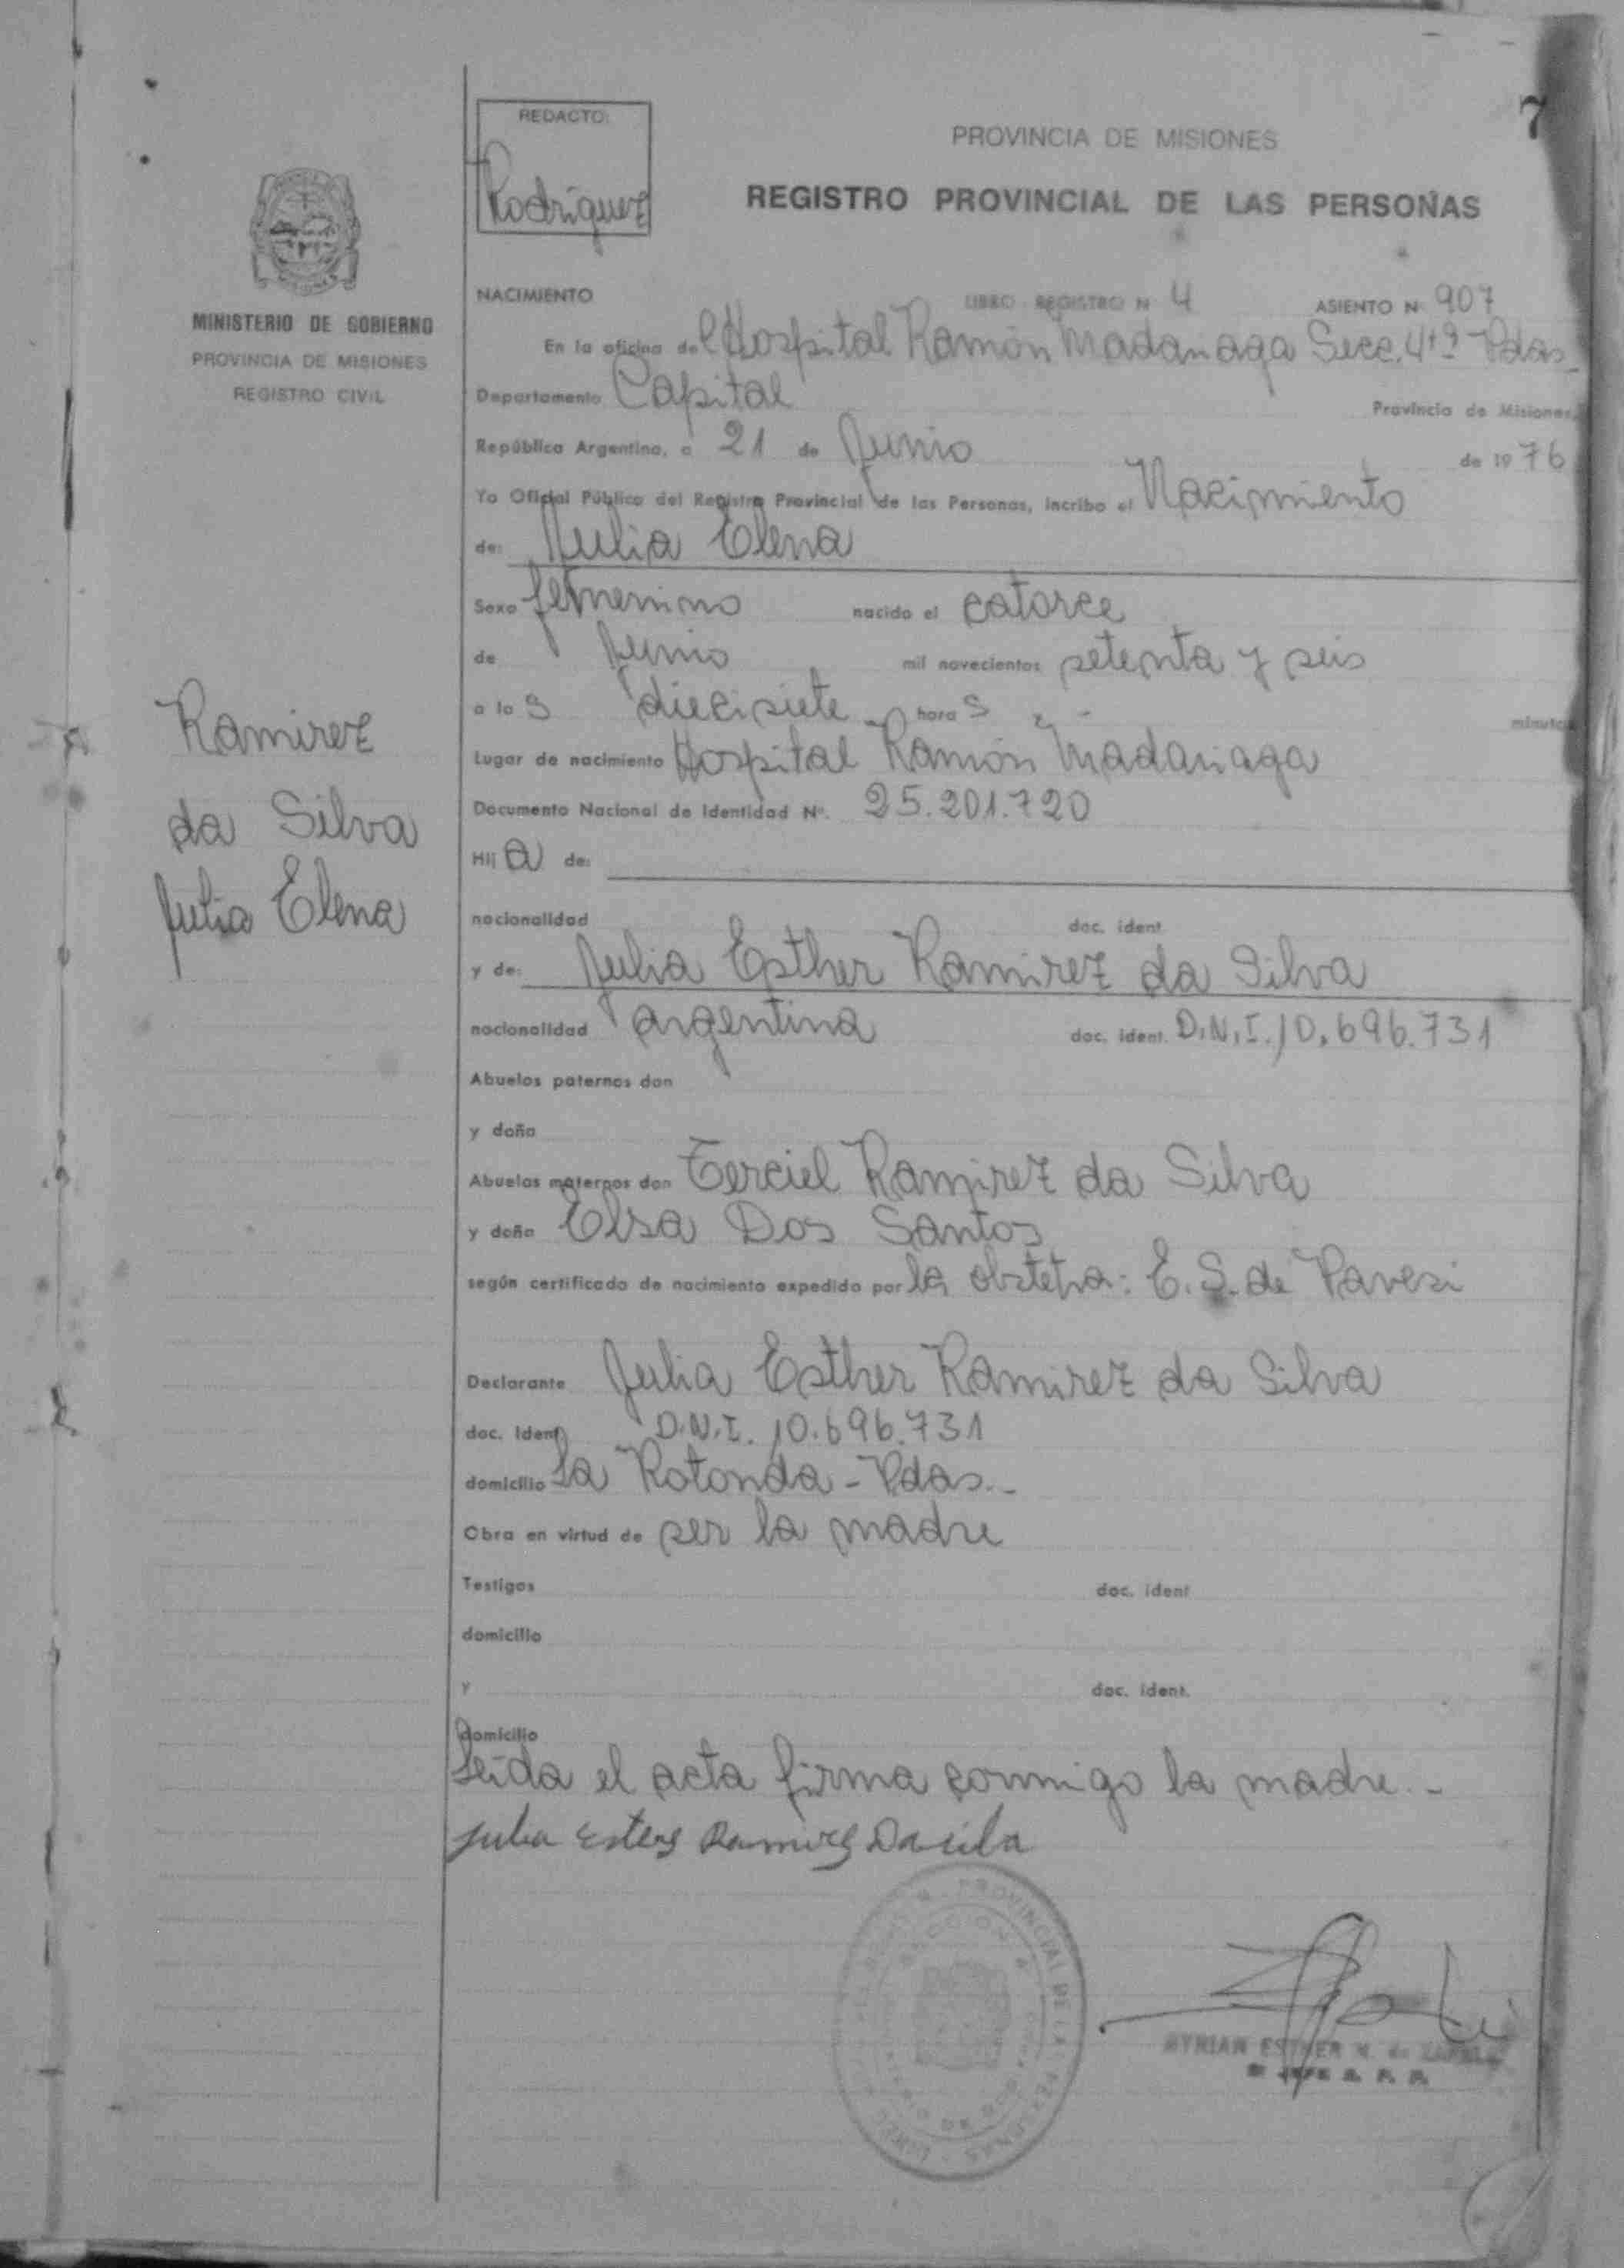 7
REDACTO:
Rodríguez
PROVINCIA DE MISIONES
REGISTRO PROVINCIAL DE LAS PERSONAS
MINISTERIO DE GOBIERNO
PROVINCIA DE MISIONES
REGISTRO CIVIL
NACIMIENTO LIBRO REGISTRO N 4 ASIENTO N 907
En la oficina del Hospital Ramón Madariaga Secc. 4ta Pdas
Departamento Capital Provincia de Misiones,
República Argentina, a 21 de Junio de 1976
Yo Oficial Público del Registro Provincial de las Personas, incribo el Nacimiento
de: Julia Elena
Sexo femenino nacido el catorce
de Junio mil novecientos setenta y seis
a las diecisiete horas minutos
Lugar de nacimiento Hospital Ramón Madariaga
Documento Nacional de Identidad Nº. 25.201.720
Hija de:
nacionalidad doc. ident.
y de: Julia Esther Ramirez da Silva
nacionalidad argentina doc. ident. D.N.I. 10.696.731
Abuelos paternos don
y doña
Abuelos maternos don Terciel Ramirez da Silva
y doña Elsa Dos Santos
según certificado de nacimiento expedido por la obstetra: E. S. de Pavesi
Declarante Julia Esther Ramirez da Silva
doc. Ident. D.N.I. 10.696.731
domicilio La Rotonda - Pdas.-
Obra en virtud de ser la madre
Testigos doc. ident
domicilio
y doc. ident.
domicilio
Leída el acta firma conmigo la madre.-
Julia Ester Ramirez Dasila
Ramirez
da Silva
Julia Elena
PROVINCIAL DE LAS PERSONAS
MYRIAN ESTHER